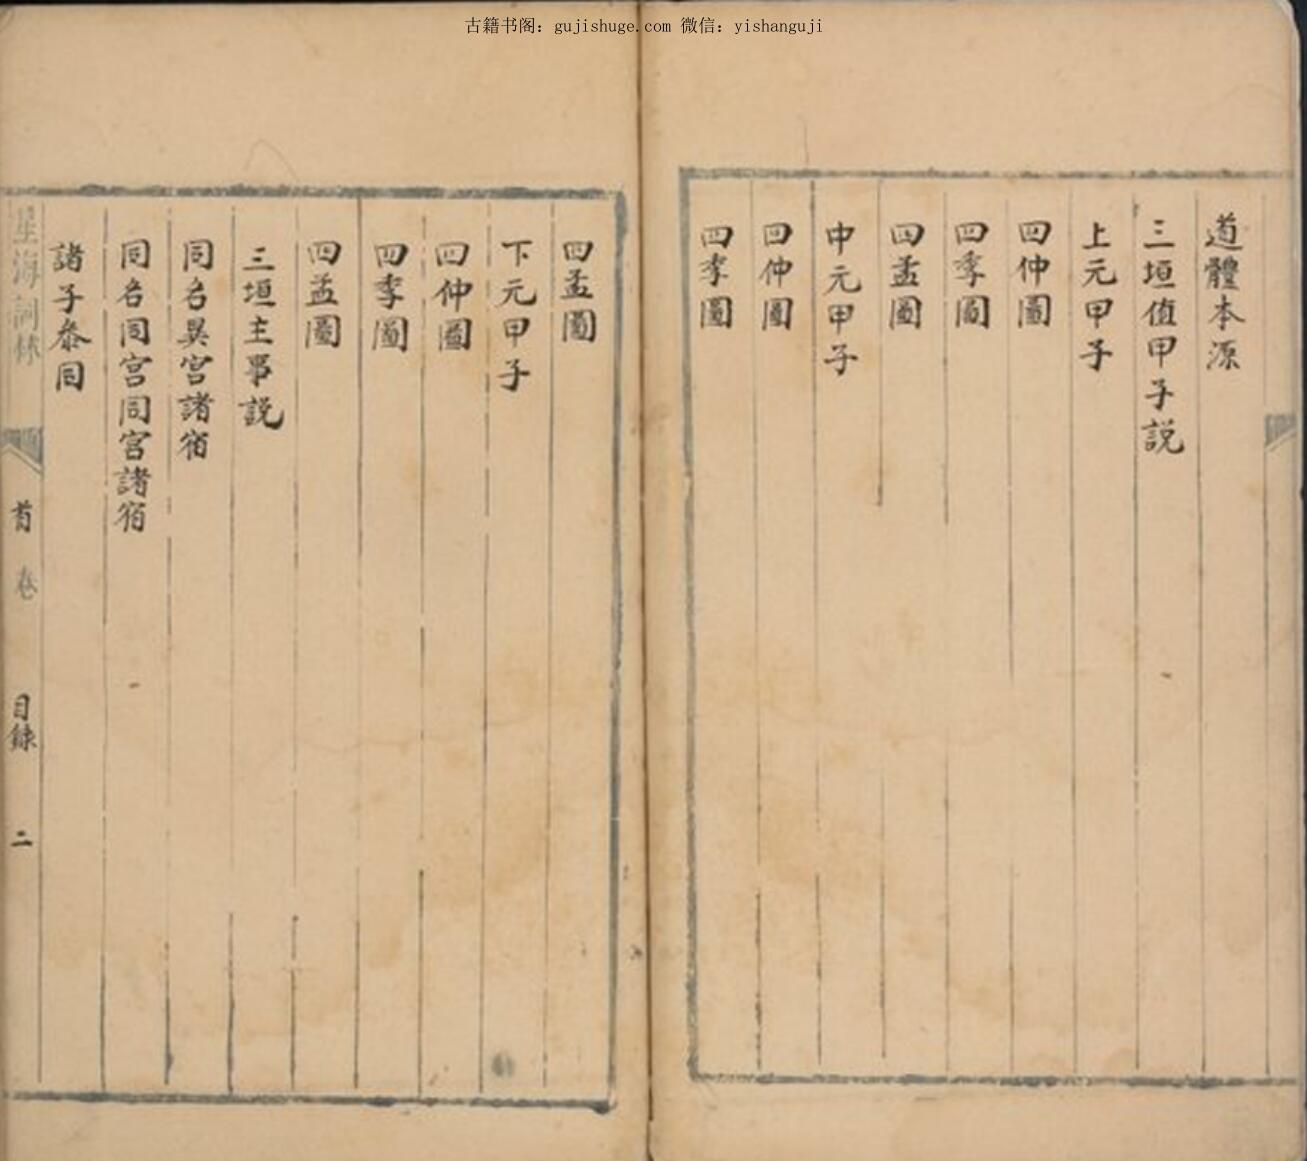 古籍书阁：gujishuge.com 微信：yishanguji
道體本源
三垣值甲子說
上元甲子
四仲圖
四季圖
四孟圖
中元甲子
四仲圖
四季圖
四孟圖
下元甲子
四仲圖
四季圖
四孟圖
三垣主事說
同名異宮諸宿
同名同宮同宮諸宿
諸子叅同
星海詞林
首卷
目錄
二